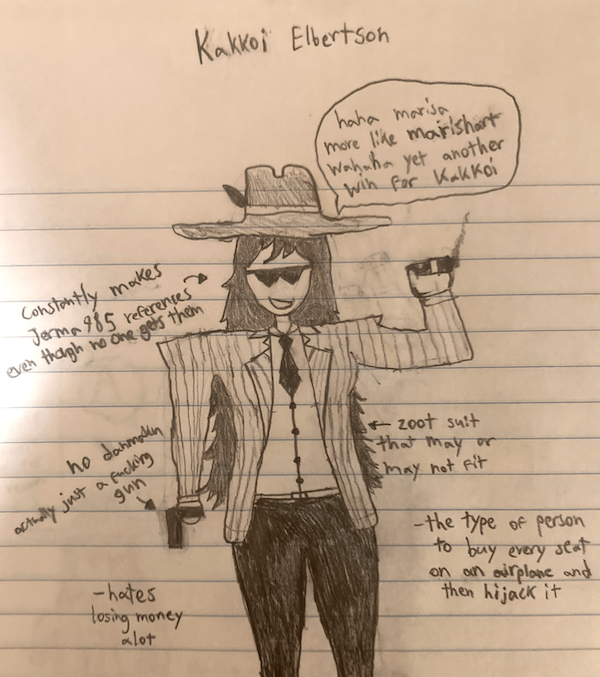 Kakkoi Elbertson
haha marisa
more like marishart
wahaha yet another
win for Kakkoi
constantly makes
Jerma985 references
even though no one gets them
zoot suit
that may or
may not fit
no danmaku
actually just a fucking
gun
-the type of person
to buy every seat
on an airplane and
then hijack it
-hates
losing money
alot